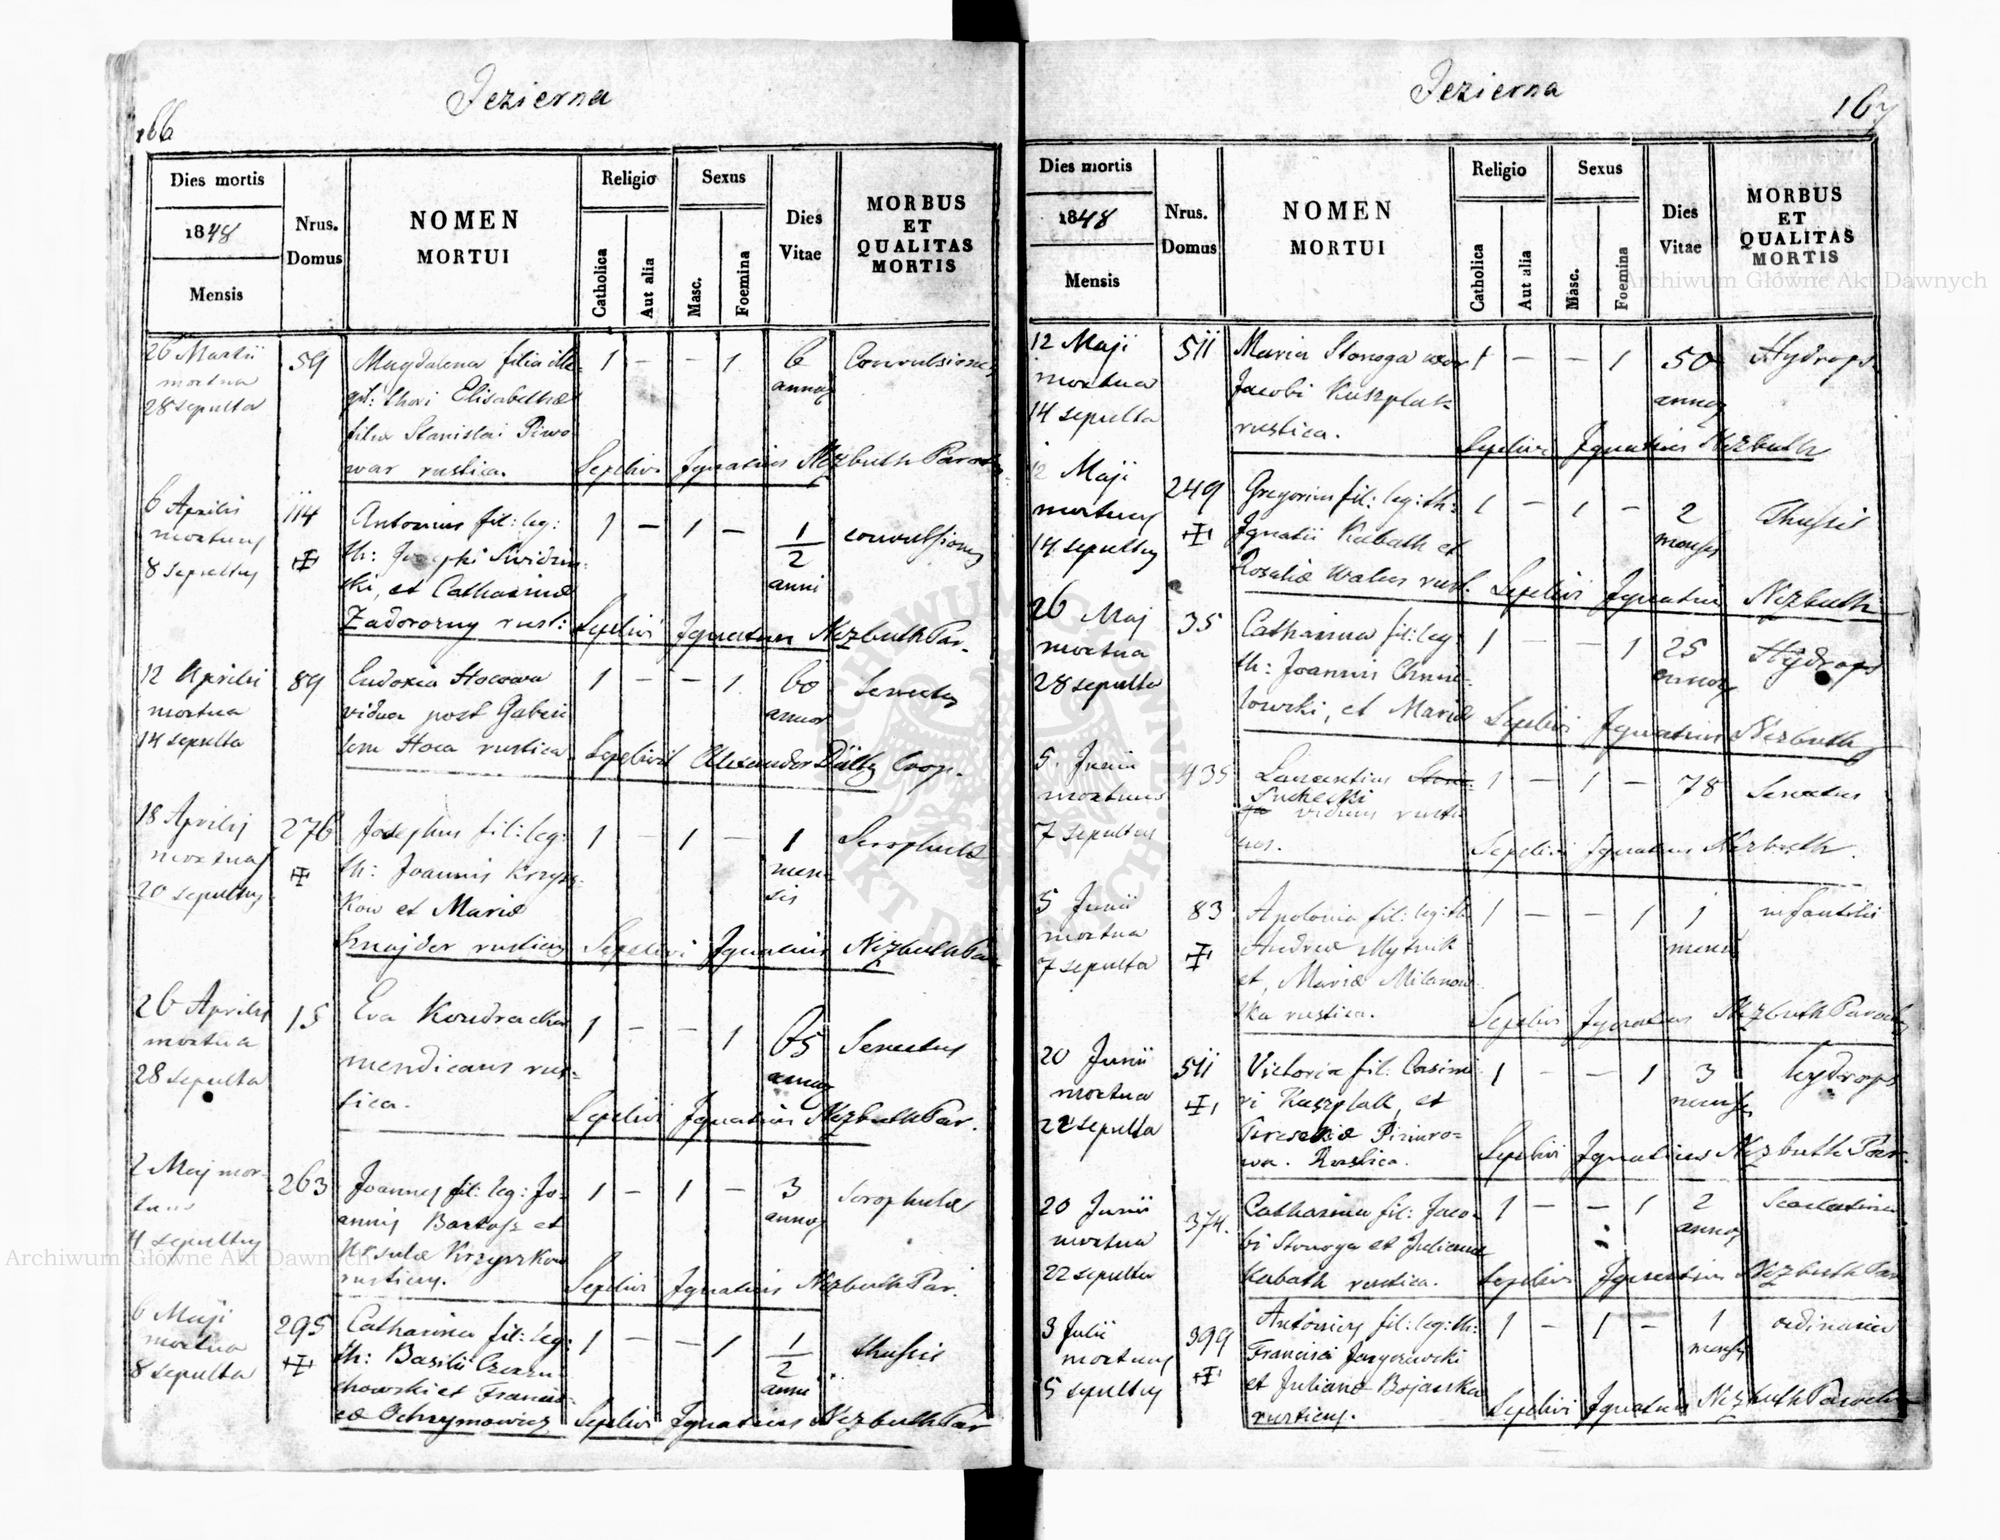 Jezierna
166
Dies mortis
1848
Mensis
Nrus.
Domus
NOMEN
MORTUI
Religio
Catholica
Aut alia
Sexus
Masc.
Foemina
Dies
Vitae
MORBUS
ET
QUALITAS
MORTIS
26 Martii
mortua
28 sepulta
59
Magdalena filia ille-
git: thori Elisabethæ
filia Stanislai Piwo
war rustica.
1 — — 1
6
annor
Convulsiones
Sepelivi Ignatius Nezbuth Paroch
6 Aprilis
mortuus
8 sepultus
114
Antonius fil: leg:
th: Josephi Swidzin-
ski, et Catharinæ
Zadorozny rust:
1 — 1 —
1/2
anni
convulsiones
Sepelivi Ignatius Nezbuth Par.
12 Aprilis
mortua
14 sepulta
89
Eudoxia Hocowa
vidua post Gabrie
lem Hoca rustica
1 — — 1
60
annor
Senectus
Sepelivit Alexander Coop.
18 Aprilis
mortuus
20 sepultus
276
Josephus fil: leg:
th: Joannis Krzysz-
kow et Mariæ
Sznajder rusticus
1 — 1 —
1
men
sis
Scrophulæ
Sepelivi Ignatius Nezbuth Par
26 Aprilis
mortua
28 sepulta
15
Eva Kondracka
mendicans rus-
tica.
1 — — 1
65
annor
Senectus
Sepelivi Ignatius Nezbuth Par.
2 Maj mor-
tuus
4 sepultus
263
Joannes fil: leg: Jo-
annis Bartosz et
Ursulæ Krzyszkow
rusticus.
1 — 1 —
3
annor
Scrophulæ
Sepelivi Ignatius Nezbuth Par.
6 Maji
mortua
8 sepulta
295
Catharina fil: leg:
th: Basilii
et Francis-
cæ Ochrymowicz
1 — — 1
1/2
anni
thussis
Sepelivi Ignatius Nezbuth Par
Jezierna
167
Dies mortis
1848
Mensis
Nrus.
Domus
NOMEN
MORTUI
Religio
Catholica
Aut alia
Sexus
Masc.
Foemina
Dies
Vitae
MORBUS
ET
QUALITAS
MORTIS
12 Maji
mortua
14 sepulta
511
Maria Stonoga uxor
Jacobi Kuszplak
rustica.
1 — — 1
50
annor
Hydrops
Sepelivi Ignatius Nezbuth
12 Maji
mortuus
14 sepultus
249
Gregorius fil: leg: th:
Ignatii Kabath et
Rosaliæ Walus rust.
1 — 1 —
2
menses
Thussis
Sepelivi Ignatius Nezbuth
26 Maj
mortua
28 sepulta
35
Catharina fil: leg:
th: Joannis Chmie-
lowski, et Mariæ
1 — — 1
25
annor
Hydrops
Sepelivi Ignatius Nezbuth
5 Junii
mortuus
7 sepultus
435
Laurentius
viduus rusti
cus.
1 — 1 —
78
Senectus
Sepelivi Ignatius Nezbuth.
5 Junii
mortua
7 sepulta
83
Apolonia fil: leg: th
Andreæ Mytnik
et, Mariæ Milanow
ska rustica.
1 — — 1
1
mensis
infantilis
Sepelivi Ignatius Nezbuth Parochus
20 Junii
mortua
22 sepulta
511
Victoria fil: Casimi
ri Kuszplak, et
Rustica.
1 — — 1
3
menses
hydrops
Sepelivi Ignatius Nezbuth Par.
20 Junii
mortua
22 sepulta
374.
Catharina fil: Jaco-
bi Stonoga et Julianna
Kabath rustica.
1 — — 1
2
annor
Scarlatina
Sepelivi Ignatius Nezbuth Par
3 Julii
mortuus
5 sepultus
399
Antonius fil: leg: th:
Francisci
et Julianæ Bojarska
rusticus.
1 — 1 —
1
mensis
ordinaria
Sepelivi Ignatius Nezbuth Parochus
Archiwum Główne Akt Dawnych
Archiwum Główne Akt Dawnych